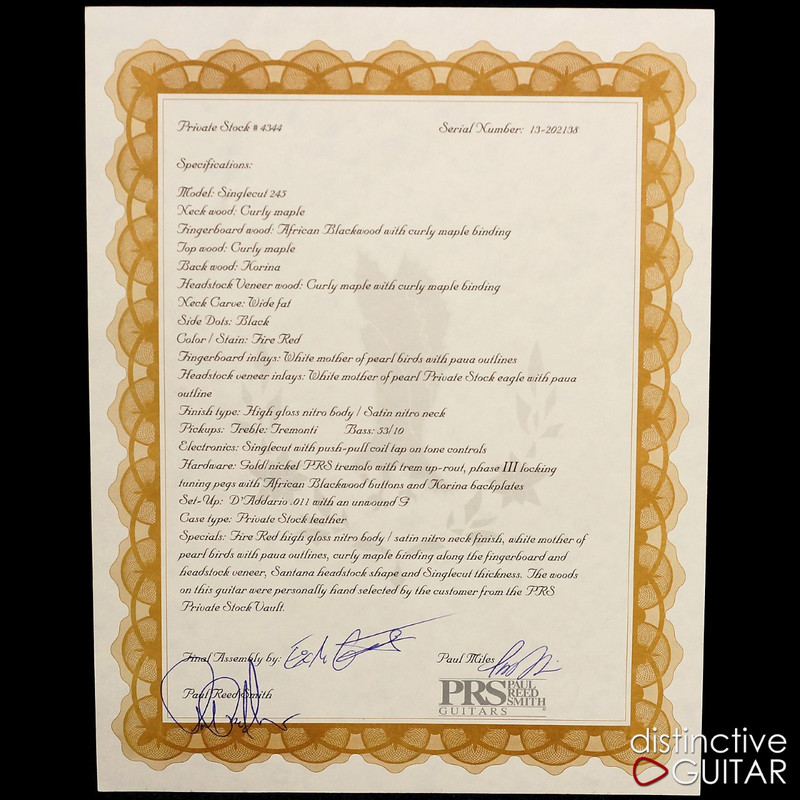 Private Stock # 4344 Serial Number: 13-202138
Specifications:
Model: Singlecut 245
Neck wood: Curly maple
Fingerboard wood: African Blackwood with curly maple binding
Top wood: Curly maple
Back wood: Korina
Headstock Veneer wood: Curly maple with curly maple binding
Neck Carve: Wide fat
Side Dots: Black
Color / Stain: Fire Red
Fingerboard inlays: White mother of pearl birds with paua outlines
Headstock veneer inlays: White mother of pearl Private Stock eagle with paua
outline
Finish type: High gloss nitro body / Satin nitro neck
Pickups: Treble: Tremonti Bass: 53/10
Electronics: Singlecut with push-pull coil tap on tone controls
Hardware: Gold/nickel PRS tremolo with trem up-rout, phase III locking
tuning pegs with African Blackwood buttons and Korina backplates
Set-Up: D'Addario .011 with an unwound G
Case type: Private Stock leather
Specials: Fire Red high gloss nitro body / satin nitro neck finish, white mother of
pearl birds with paua outlines, curly maple binding along the fingerboard and
headstock veneer, Santana headstock shape and Singlecut thickness. The woods
on this guitar were personally hand selected by the customer from the PRS
Private Stock Vault.
Final Assembly by:
Paul Miles
Paul Reed Smith
PRS PAUL REED SMITH
GUITARS
distinctive
GUITAR